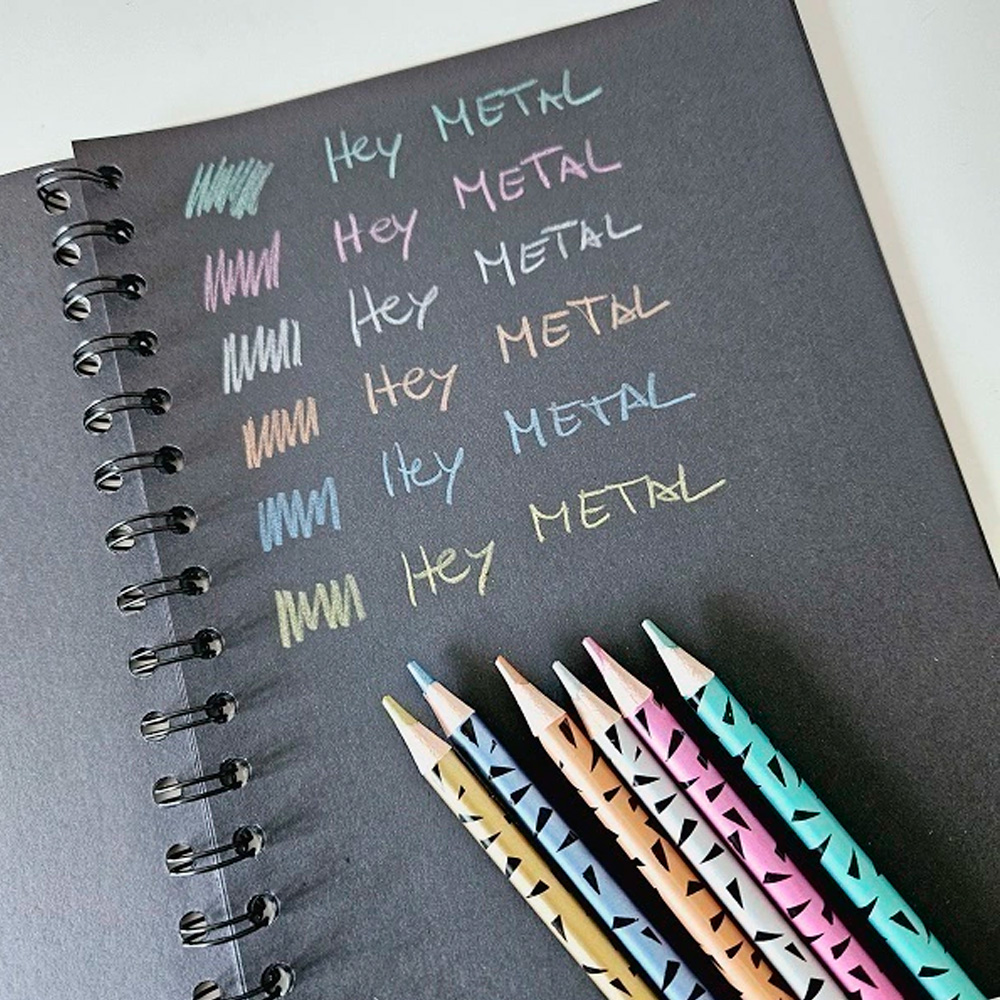 Hey METAL
Hey METAL
Hey METAL
Hey METAL
Hey METAL
Hey METAL